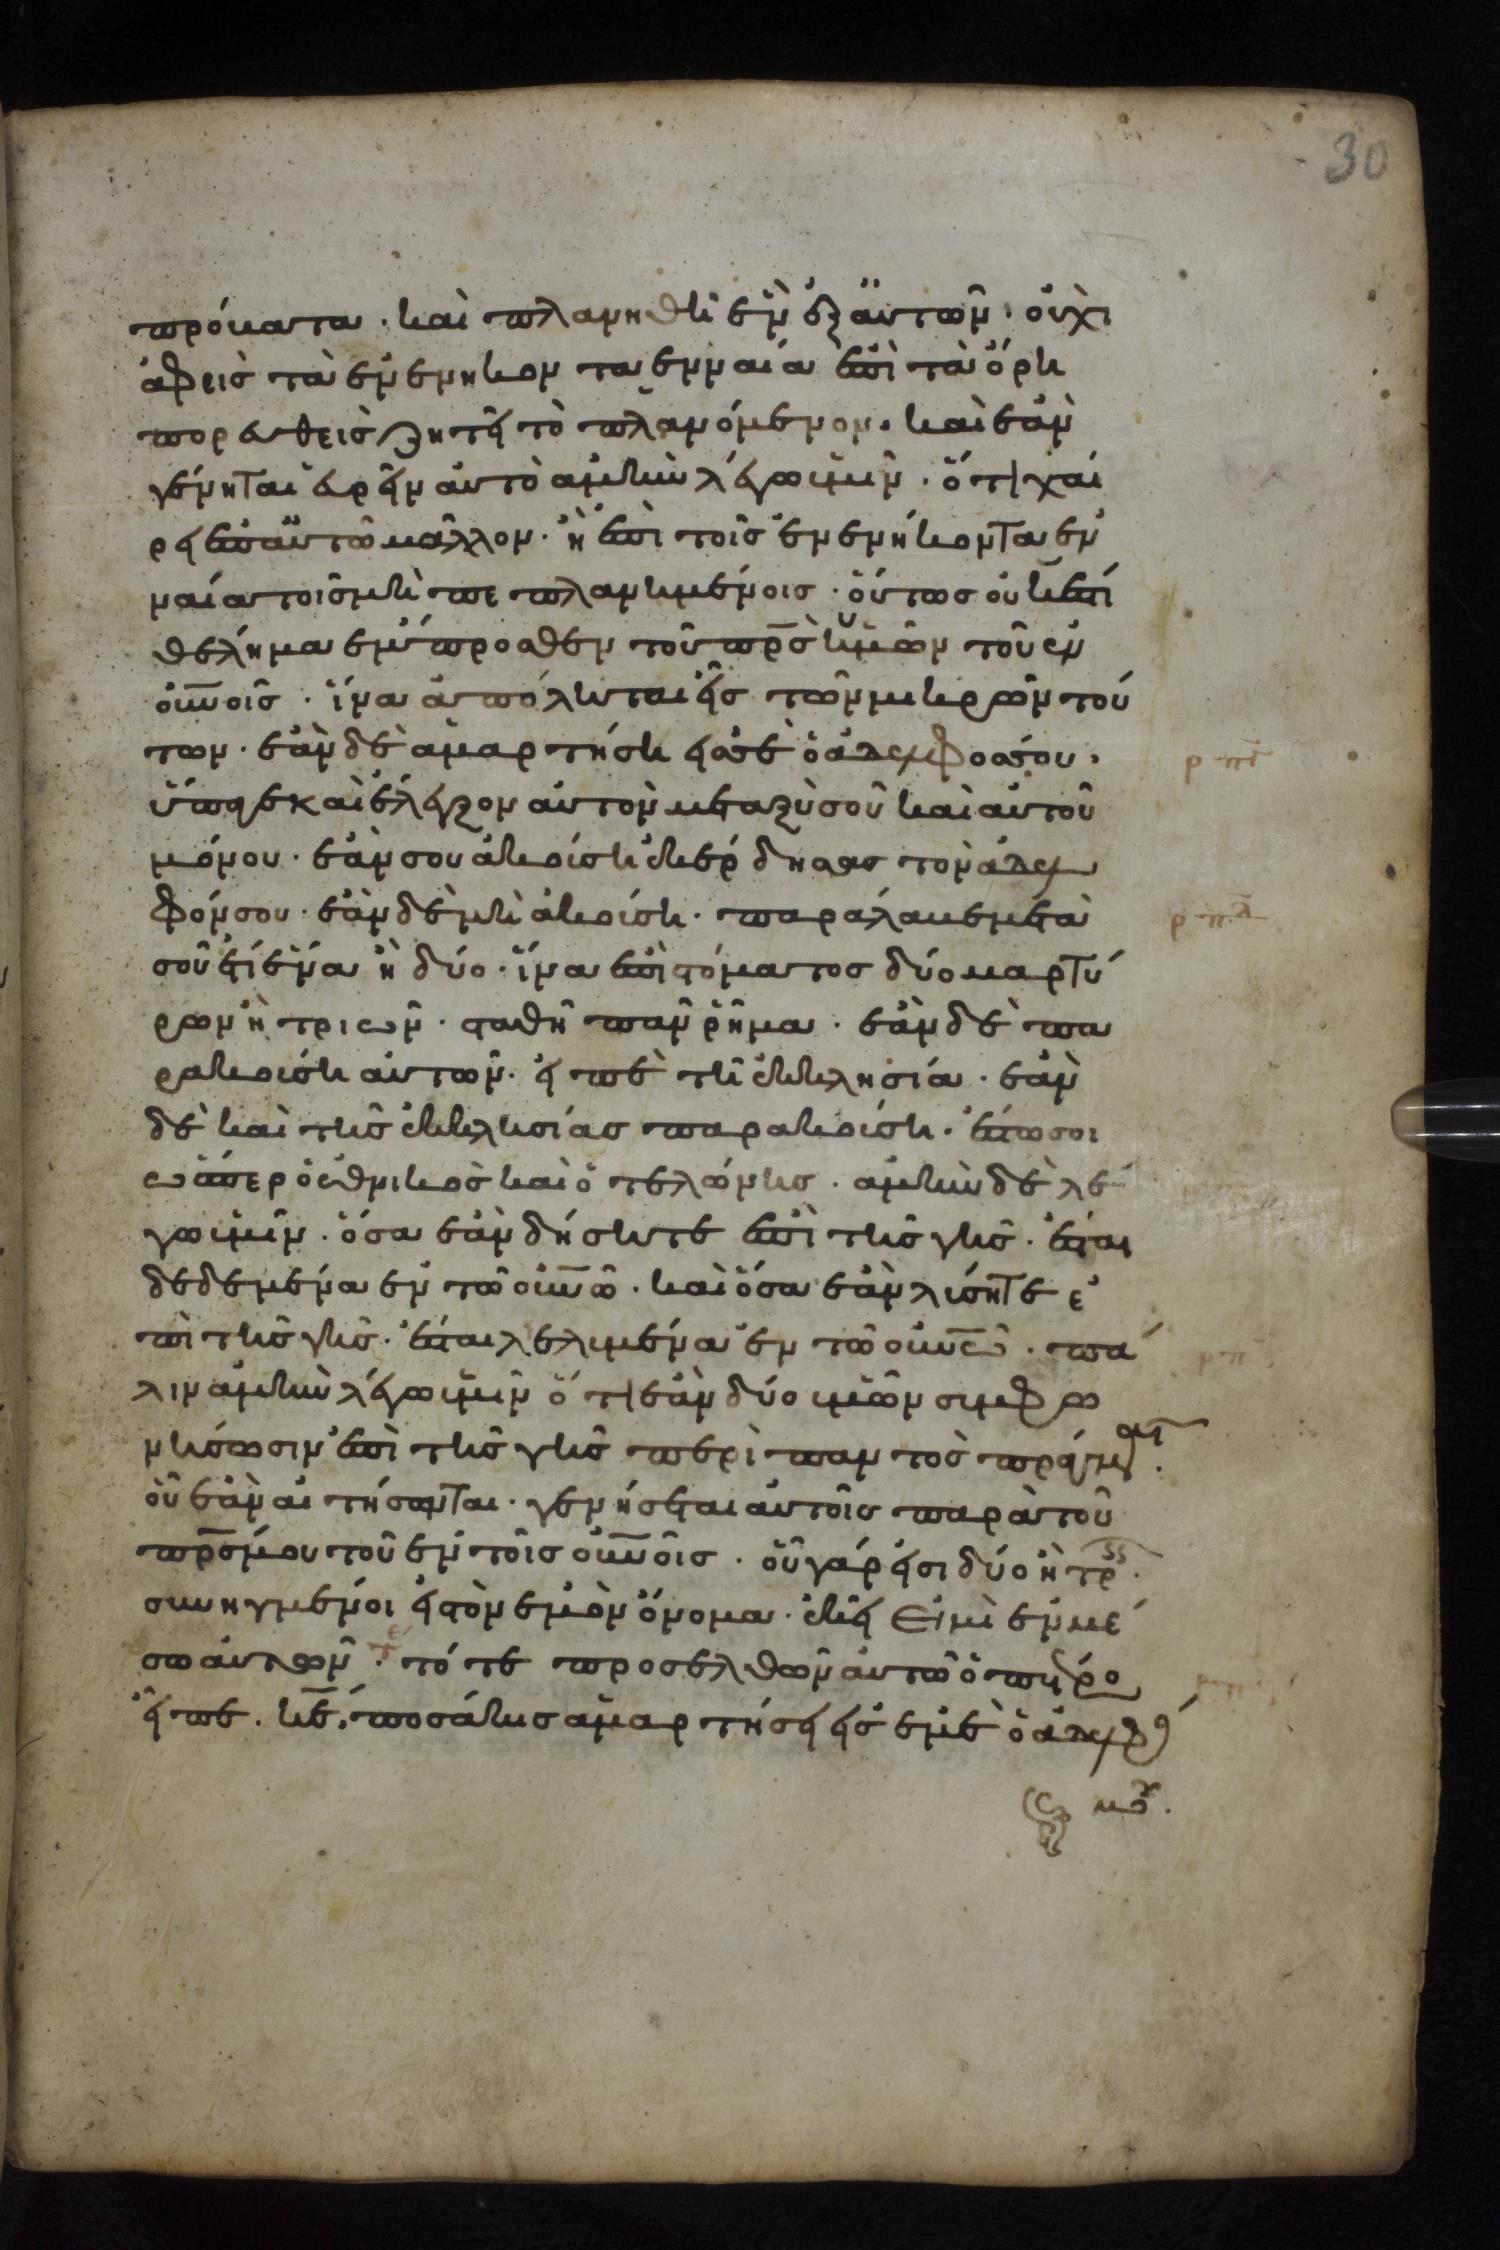 30
πρόβατα · καὶ πλανηθῆ ἓν ἐξ αὐτῶν · οὐχὶ
ἀφεὶς τὰ ἐνενηκονταενναία ἐπὶ τὰ ὄρη
πορευθεὶς ζητεῖ τὸ πλανόμενον · καὶ ἐὰν
γένηται εὑρεῖν αὐτὸ ἀμὴν λέγω ὑμῖν · ὅτι χαί
ρει ἐπ' αὐτῶ μᾶλλον · ἢ ἐπὶ τοῖς ἐνενήκονταεν
ναία τοῖς μὴ πεπλανημένοις · οὕτως οὐκ ἔστι
θέλημα ἔμπροσθεν τοῦ πρ̅ς ὑμῶν τοῦ ἐν
οὐν̅οις · ἵνα ἀπόληται εἷς τῶν μικρῶν τού
των · ἐὰν δὲ ἁμαρτήση εἰς σὲ ὁ ἀδελφός σου ·
ὕπαγε καὶ ἔλεγξον αὐτὸν μεταξὺ σοῦ καὶ αὐτοῦ
μόνου · ἐάν σου ἀκούση ἐκέρδησας τὸν ἀδελ
φόν σου · ἐὰν δὲ μὴ ἀκούση · παράλαβε μετὰ
σοῦ ἔτι ἕνα ἢ δύο · ἵνα ἐπὶ στόματος δύο μαρτύ
ρων ἢ τριῶν · σταθῆ πᾶν ῥῆμα · ἐὰν δὲ πα
ρακούση αὐτῶν · εἰπὲ τῆ ἐκκλησία · ἐὰν
δὲ καὶ τῆς ἐκκλησίας παρακούση · ἔστω σοι
ὥσπερ ὁ ἐθνικὸς καὶ ὁ τελώνης · ἀμὴν δὲ λέ
γω ὑμῖν · ὅσα ἐὰν δήσητε ἐπὶ τῆς γῆς · ἔσται
δεδεμένα ἐν τῶ οὐν̅ῶ · καὶ ὅσα ἐὰν λύσητε ἐ
πὶ τῆς γῆς · ἔσται λελυμένα ἐν τῶ οὐν̅ῶ · πά
λιν ἀμὴν λέγω ὑμῖν ὅτι ἐὰν δύο ὑμῶν συμφω
νήσωσιν ἐπὶ τῆς γῆς περὶ παντὸς πράγματ
οὗ ἐὰν αἰτήσωνται · γενήσεται αὐτοῖς παρὰ τοῦ
πρ̅ς μου τοῦ ἐν τοῖς οὐν̅οῖς · οὗ γάρ εἰσι δύο ἢ τρ̅ς ·
συνηγμένοι εἰς τὸν ἐμὸν ὄνομα · ἐκεῖ εἰμὶ ἐν μέ
σω αὐτῶν · τότε προσελθῶν αὐτῶ ὁ πέτρο
εἶπε · κε̅ · ποσάκις ἁμαρτήσει εἰς ἐμὲ ὁ ἀδελφό
μου ·